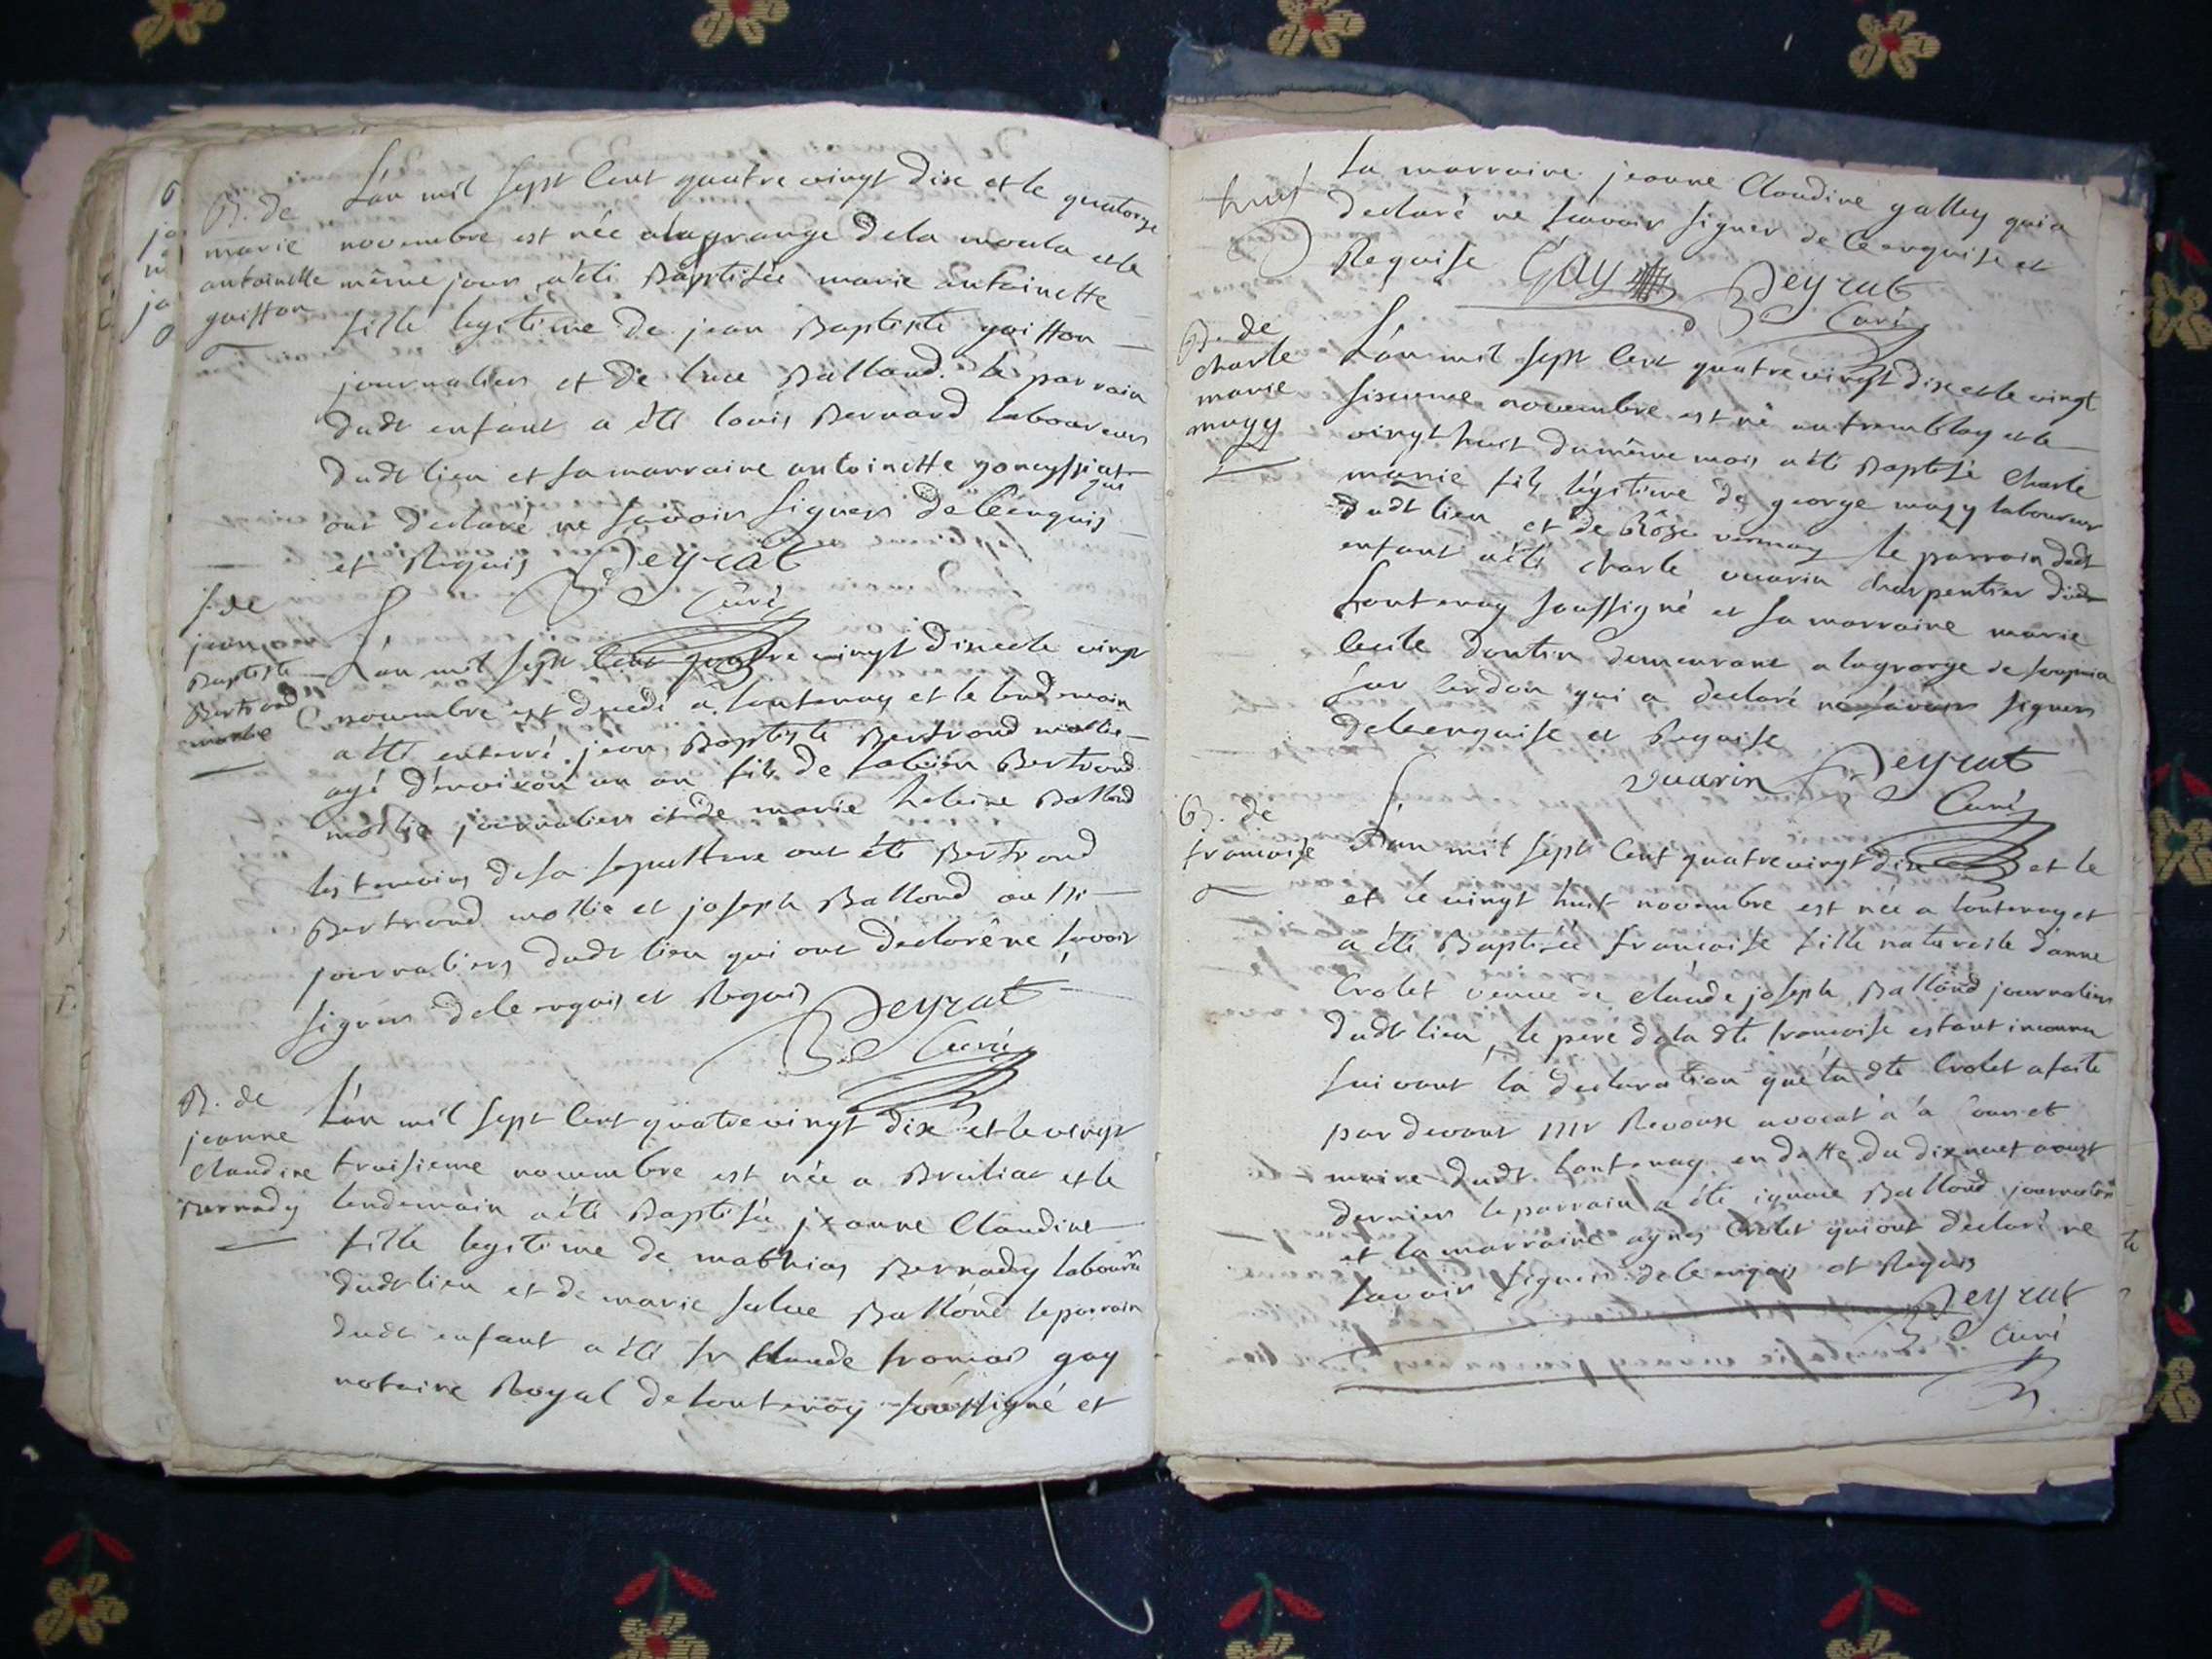 B. de
marie
antoinette
guitton
L'an mil sept cent quatre vingt dix et le quatorze
novembre est née a la grange de la et le
même jour a été Baptisée marie antoinette
fille legitime de jean Baptiste guitton
journalier et de luce Balland. le parrain
dudt enfant a été louis Bernard laboureur
dudt lieu et sa marraine antoinette qui
ont déclaré ne savoir signer de ce enquis
et Requis Peyrat
Curé
S. de
jean
Baptiste
Bertrand
L'an mil sept cent quatre vingt dix et le vingt
novembre est decedé a Lontenay et le lendemain
a été enterré jean Baptiste Bertrand
agé d'environ un an fils de fabien Bertrand
journalier et de marie heleine Balland
les temoins de sa sepulture ont été Bertrand
Bertrand et joseph Balland aussi
journaliers dudt lieu qui ont declaré ne savoir
signer de ce enquis et Requis Peyrat
Curé
B. de
jeanne
Claudine
Bernady
L'an mil sept cent quatre vingt dix et le vingt
troisieme novembre est née a Bruliat et le
lendemain a été Baptisée jeanne Claudine
fille legitime de mathias Bernady
dudt lieu et de marie Balland le parrain
dudt enfant a été sr Claude francois gay
notaire Royal de Lontenay soussigné et
huit
la marraine jeanne Claudine galley qui a
declaré ne scavoir signer de ce enquise et
Requise Gay Peyrat
Curé
B. de
charle
marie
mazy
L'an mil sept cent quatre vingt dix et le vingt
sixieme novembre est né au tremblay et le
vingt huit du même mois a été Baptisé Charle
marie fils légitime de george mazy laboureur
dudt lieu et de Rôze le parrain dudt
enfant a été charle vuarin charpentier dudt
Lontenay soussigné et sa marraine marie
Cecile dontin demeurant a la grange de
sur Cerdon qui a declaré ne savoir signer
de ce enquise et Requise
vuarin Peyrat
Curé
B. de
francoise
L'an mil sept cent quatre vingt dix et le
et le vingt huit novembre est née a Lontenay et
a été Baptisée francoise fille naturelle d'anne
Crolet veuve de claude joseph Balland journalier
dudt lieu, le pere de la dte francoise estant inconnu
suivant la declaration que la dte Crolet a faite
par devant Mr avocat a la Cour et
maire dudt Lontenay en datte du dix neuf aoust
dernier le parrain a été ignace Balland
et la marraine agnes Crolet qui ont declaré ne
savoir signer de ce enquis et Requis
Peyrat
Curé